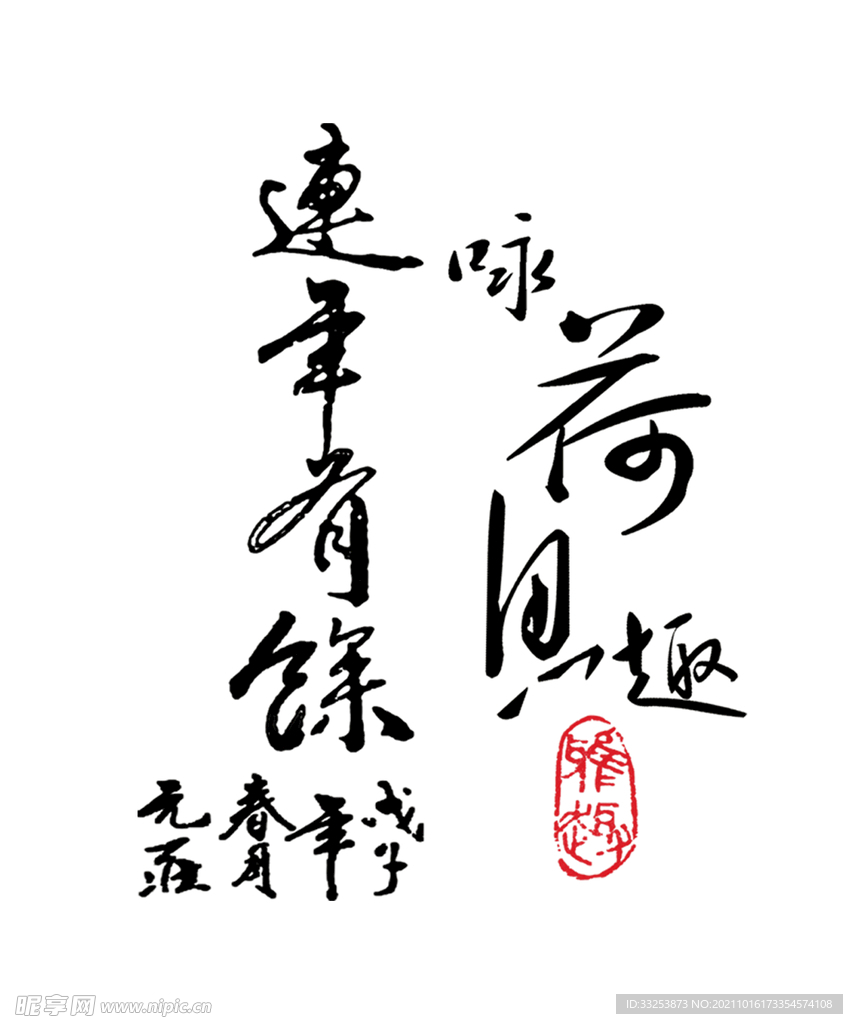 咏荷
趣
雅趣
連年有餘
戊子
年
春月
元
昵享网 www.nipic.cn
ID:33253873 NO:20211016173354574108